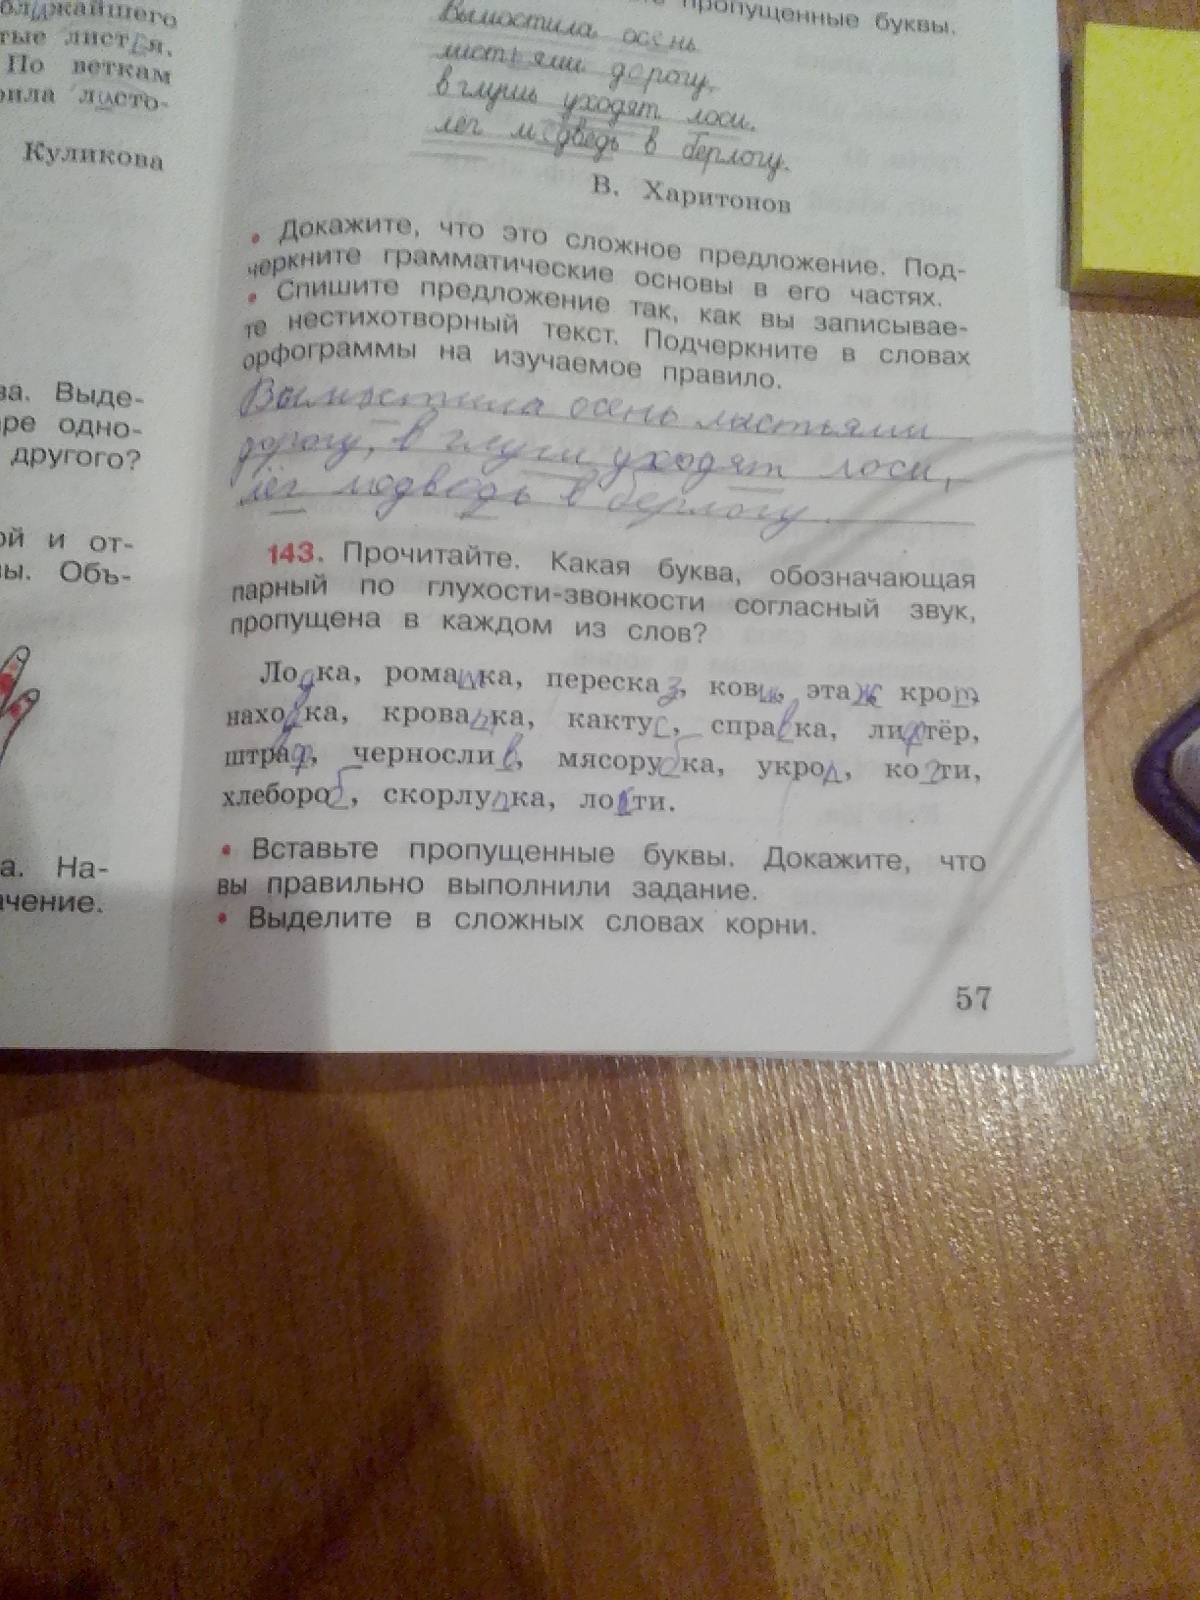 ближайшего
тые листья.
По веткам
листо-
Куликова
ва. Выде-
аре одно-
другого?
ой и от-
вы. Объ-
а. На-
ачение.
пропущенные буквы.
Вымостила осень
листьями дорогу,
в глушь уходят лоси,
лёг медведь в берлогу.
В. Харитонов
• Докажите, что это сложное предложение. Под-
черкните грамматические основы в его частях.
• Спишите предложение так, как вы записывае-
те нестихотворный текст. Подчеркните в словах
орфограммы на изучаемое правило.
Вымостила осень листьями
дорогу, в глуши уходят лоси,
лёг медведь в берлогу.
143. Прочитайте. Какая буква, обозначающая
парный по глухости-звонкости согласный звук,
пропущена в каждом из слов?
Лодка, ромашка, пересказ, ковш, этаж крот,
находка, кроватка, кактус, справка, лифтёр,
штраф, чернослив, мясорубка, укроп, когти,
хлебороб, скорлупка, локти.
• Вставьте пропущенные буквы. Докажите, что
вы правильно выполнили задание.
• Выделите в сложных словах корни.
57